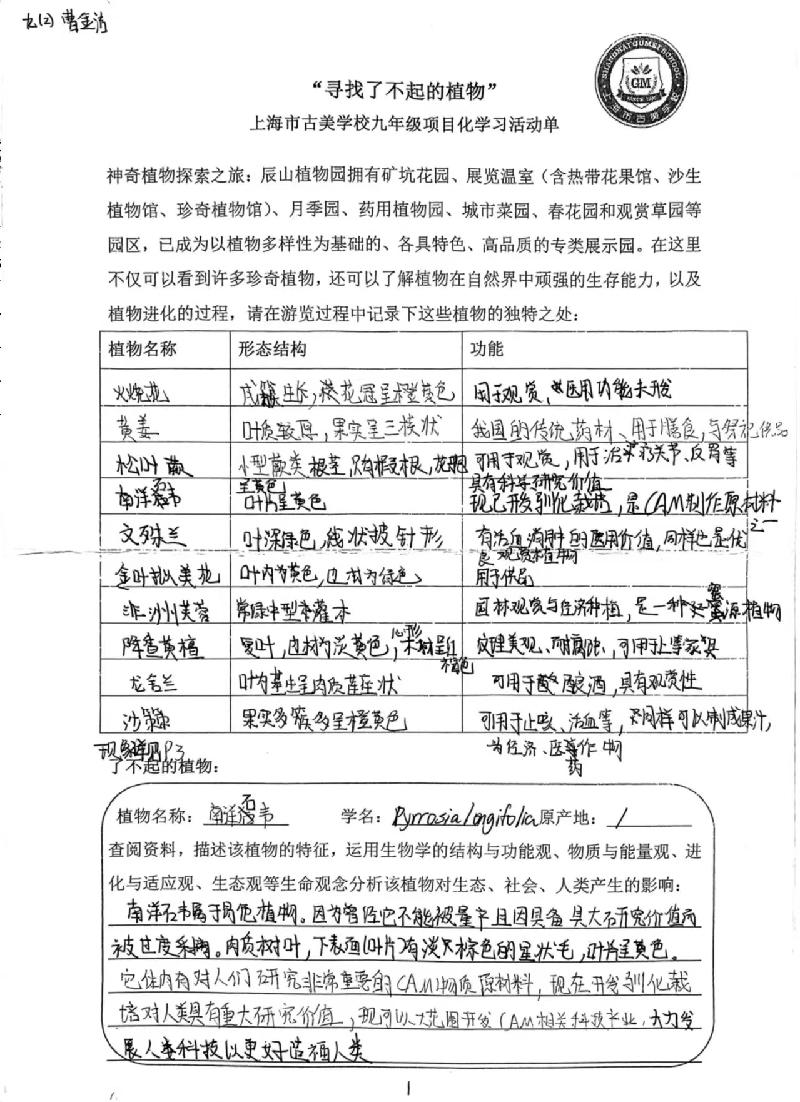 九(2) 曹金涛
SHANGHAI GUMEI SCHOOL
GM
上海市古美学校
“寻找了不起的植物”
上海市古美学校九年级项目化学习活动单
神奇植物探索之旅：辰山植物园拥有矿坑花园、展览温室（含热带花果馆、沙生
植物馆、珍奇植物馆）、月季园、药用植物园、城市菜园、春花园和观赏草园等
园区，已成为以植物多样性为基础的、各具特色、高品质的专类展示园。在这里
不仅可以看到许多珍奇植物，还可以了解植物在自然界中顽强的生存能力，以及
植物进化的过程，请在游览过程中记录下这些植物的独特之处：
植物名称 形态结构 功能
火烧花 花冠呈橙黄色 用于观赏，医用功能未开发
黄姜 叶质较厚，果实呈三棱状 我国的传统药材、用于膳食，与祭祀供品
松叶蕨 小型蕨类 根茎，只有假根，孢子囊呈黄色 可用于观赏，用于治疗关节、反胃等
南洋石韦 叶片呈黄色 具有科学研究价值 现已开发驯化栽培，是CAM制作原材料之一
文殊兰 叶深绿色，线状披针形 有活血消肿的医用价值，同样也是优良观赏植物
金叶拟美花 叶内为黄色，边材为绿色 用于供品
非洲芙蓉 常绿中型灌木 园林观赏与经济种植，是一种蜜源植物
降香黄檀 复叶，边材为淡黄色，心形木材呈红褐色 纹理美观、耐腐蚀，可用于上等家具
龙舌兰 叶为基生呈肉质莲座状 可用于酿酒，具有观赏性
沙棘 果实多簇多呈橙黄色 可用于止咳、活血等，同样可以制成果汁，为经济、医药作物
现象详见P3
了不起的植物：
植物名称：南洋石韦 学名：Pyrrosia longifolia 原产地：/
查阅资料，描述该植物的特征，运用生物学的结构与功能观、物质与能量观、进
化与适应观、生态观等生命观念分析该植物对生态、社会、人类产生的影响：
南洋石韦属于濒危植物。因为曾经它不能被量产且因具备具大研究价值而
被过度采用。肉质材叶，下表面(叶片)有淡灰棕色的星状毛，叶片呈黄色。
它体内有对人们研究非常重要的CAM物质原材料，现在开发驯化栽
培对人类具有重大研究价值，现可以大范围开发CAM相关科技产业，大力发
展人类科技以更好造福人类
1